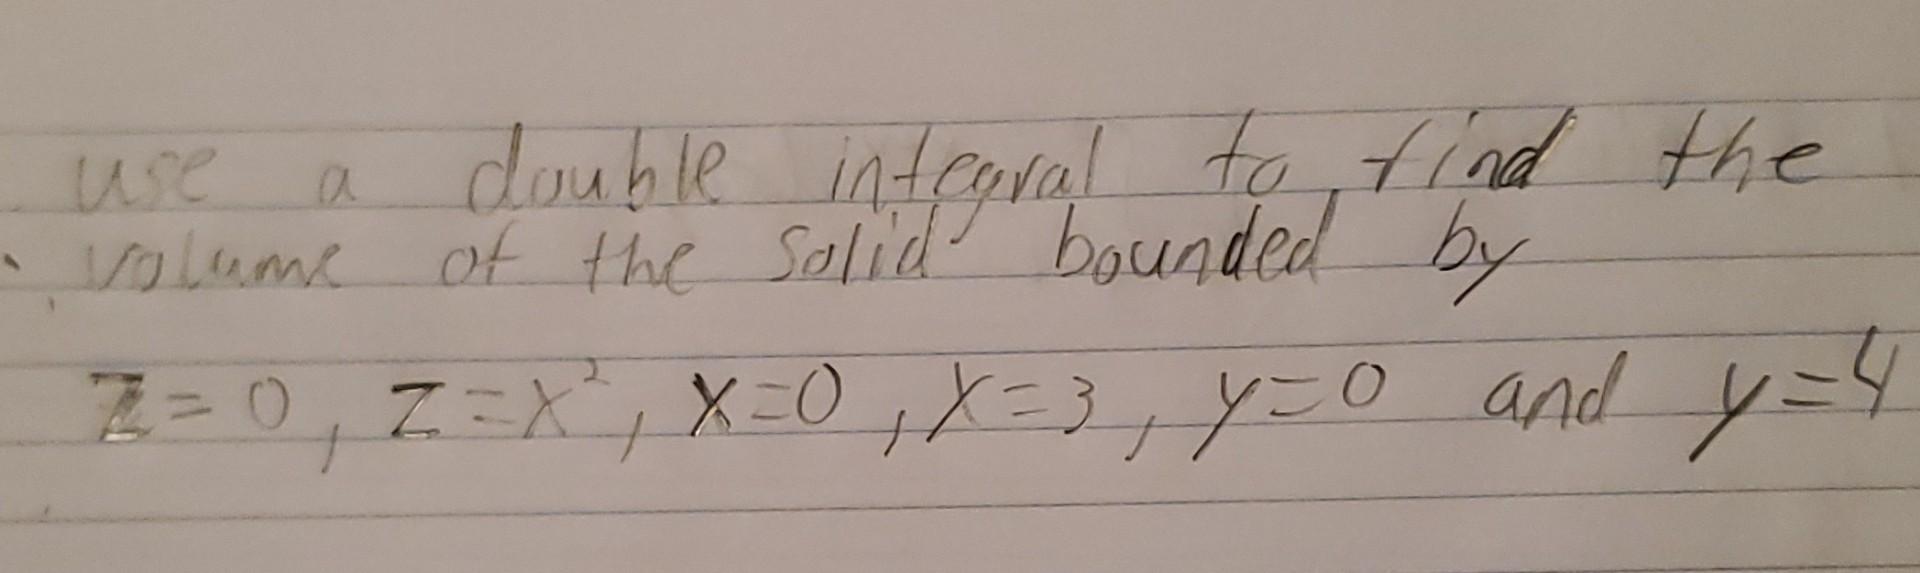 use a double integral to find the
volume of the solid bounded by
z=0, z=x², x=0, x=3, y=0 and y=4